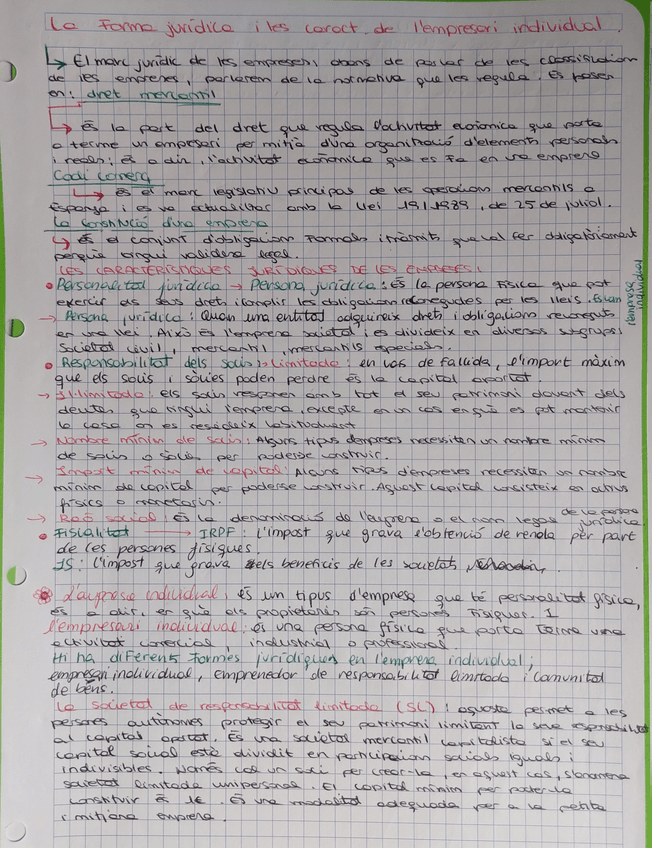 La forma jurídica i les caract. de l'empresari individual.
El marc jurídic de les empreses, abans de parlar de les classificacion
de les empreses, parlarem de la normativa que les regula. Es basen
en: dret mercantil
És la part del dret que regula l'activitat econòmica que porta
a terme un empresari per mitjà d'una organització d'elements personals
i reals; és a dir, l'activitat econòmica que es fa en una empresa
Codi comerç
és el marc legislatiu principal de les operacions mercantils a
Espanya i es va actualitzar amb la llei 19/1989, de 25 de juliol.
La constitució d'una empresa
És el conjunt d'obligacions formals i tràmits que cal fer obligatòriament
perquè tingui validesa legal.
LES CARACTERÍSTIQUES JURÍDIQUES DE LES EMPRESES:
Personalitat jurídica → Persona jurídica: és la persona física que pot
exercir els seus drets i complir les obligacions reconegudes per les lleis. Es un
individual
→ Persona jurídica: Quan una entitat adquireix drets i obligacions reconeguts
en una llei. Això és l'empresa societat i es divideix en diversos subgrups:
societat civil, mercantil, mercantils especials.
Responsabilitat dels socis: Limitada: en cas de fallida, l'import màxim
que els socis i sòcies poden perdre és la capital aportat.
→ Il·limitada: els socis responen amb tot el seu patrimoni davant dels
deutes que tingui l'empresa, excepte en un cas en què es pot mantenir
la casa on es resideix habitualment
→ Nombre mínim de socis: Alguns tipus d'empreses necessiten un nombre mínim
de socis o sòcies per poderse construir.
→ Import mínim de capital: Alguns tipus d'empreses necessiten un nombre
mínim de capital per poderse construir. Aquest capital consisteix en actius
físics o monetaris.
→ Raó social: És la denominació de l'empresa o el nom legal de la persona
jurídica.
Fiscalitat → IRPF: l'impost que grava l'obtenció de renda per part
de les persones físiques.
IS: l'impost que grava els beneficis de les societats
L'empresa individual: és un tipus d'empresa que té personalitat física,
és a dir, en què els propietaris són persones físiques. 1
l'empresari individual: és una persona física que porta terme una
activitat comercial, industrial o professional.
Hi ha diferents formes jurídiques en l'empresa individual;
empresari individual, emprenedor de responsabilitat limitada i comunitat
de béns.
La societat de responsabilitat limitada (SL): aquesta permet a les
persones autònomes protegir el seu patrimoni limitant la seva
al capital aportat. És una societat mercantil capitalista si el seu
capital social està dividit en participacion socials iguals i
indivisibles. Només cal un soci per crear-la, en aquest cas, s'anomena
societat limitada unipersonal. El capital mínim per poder-la
constituir és 1€. És una modalitat adequada per a la petita
i mitjana empresa.